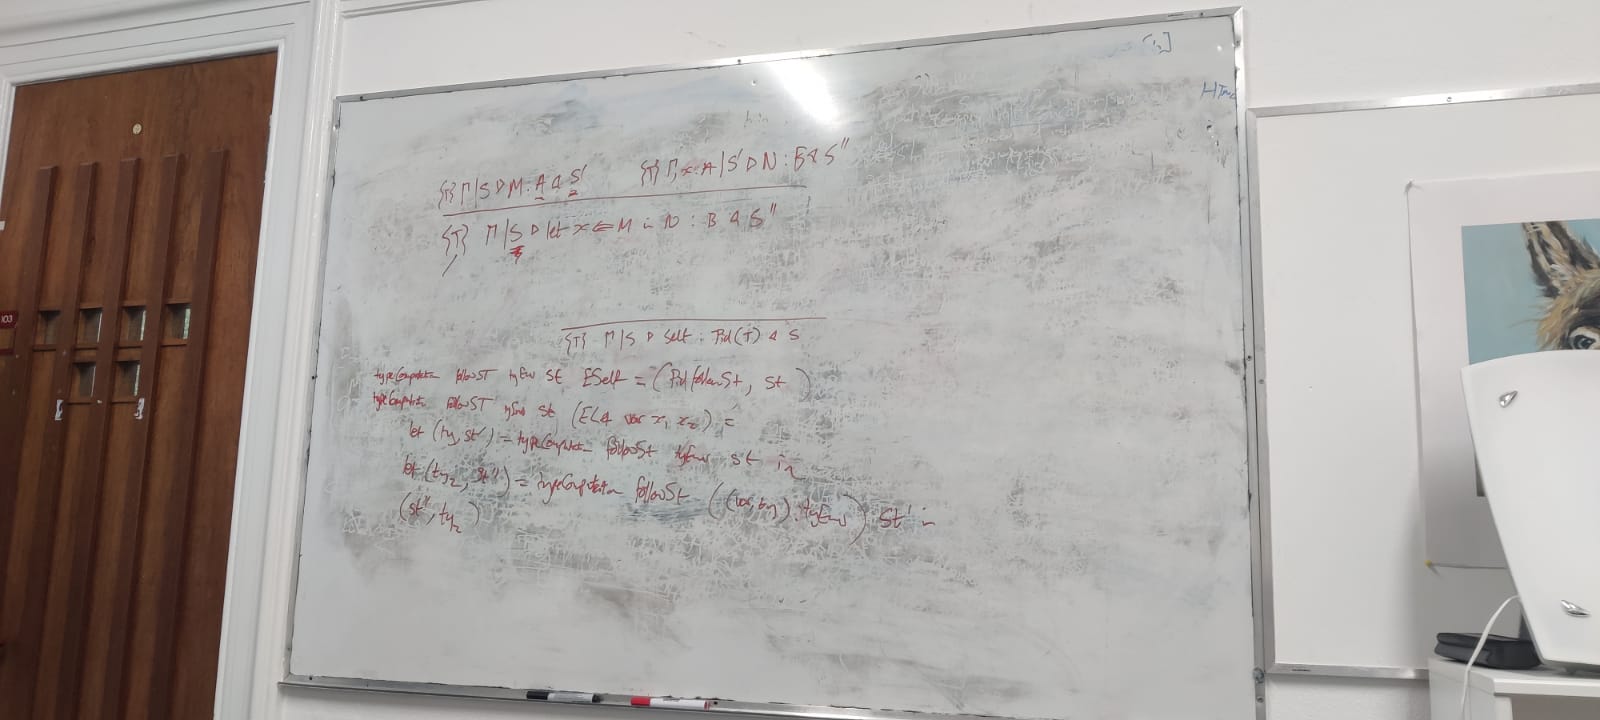 [i₂]
HTML
{T} Γ | S ▷ M : A ◁ S'    {T} Γ, x : A | S' ▷ N : B ◁ S''
{T} Γ | S ▷ let x ⇐ M in N : B ◁ S''
103
{T} Γ | S ▷ Self : Pid(T) ◁ S
typeComputation followST tyEnv st ESelf = (Pid followSt, st)
typeComputation followST tyEnv st (ELet var x₁ x₂) =
let (ty, st') = typeComputation followSt tyEnv st in
let (ty₂, st'') = typeComputation followSt ((var, ty) : tyEnv) st' in
(st'', ty₂)